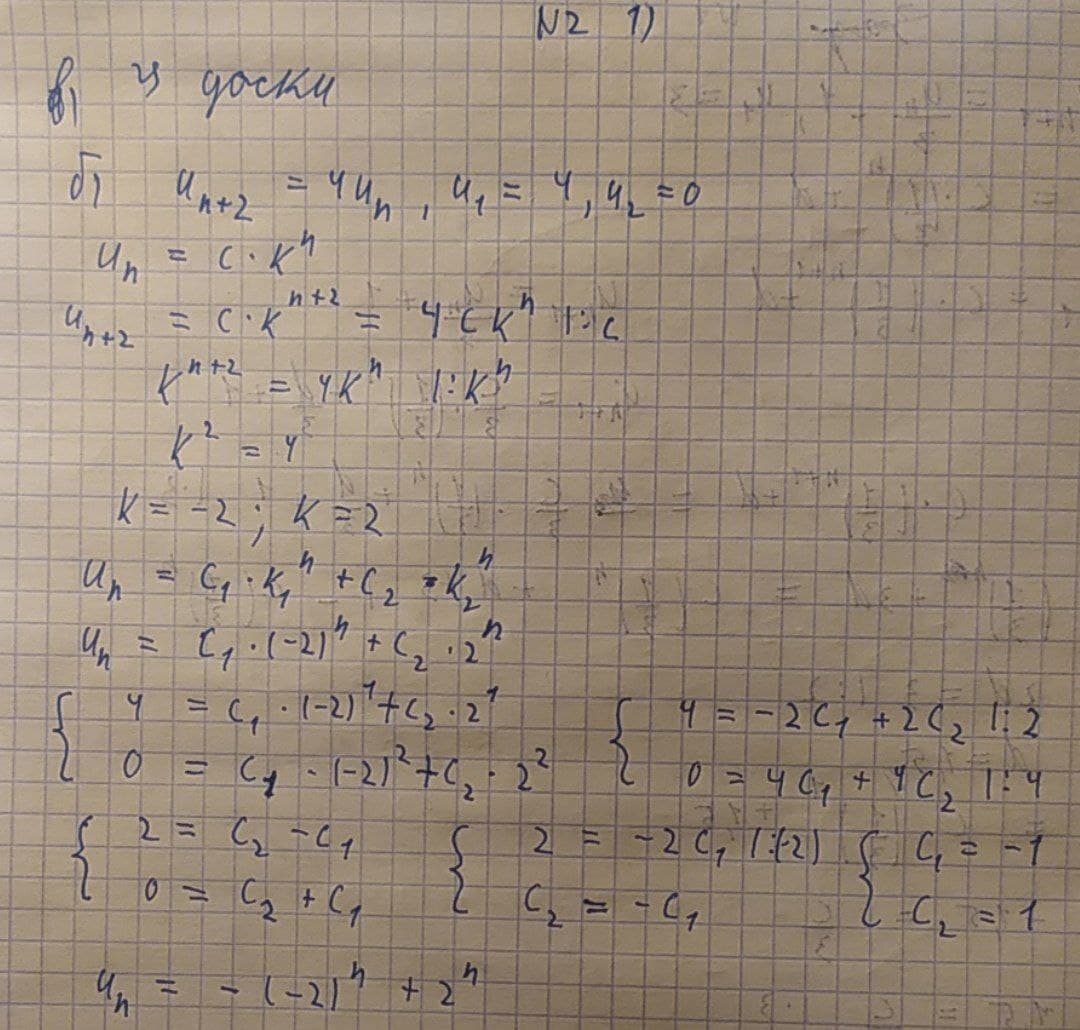 N2 1)
в) у доски
б) u_{n+2} = 4u_n, u_1 = 4, u_2 = 0
u_n = c · k^n
u_{n+2} = c · k^{n+2} = 4 · c k^n |: c
k^{n+2} = 4k^n |: k^n
k^2 = 4
k = -2; k = 2
u_n = c_1 · k_1^n + c_2 · k_2^n
u_n = c_1 · (-2)^n + c_2 · 2^n
{ 4 = c_1 · (-2)^1 + c_2 · 2^1 { 4 = -2c_1 + 2c_2 |: 2
0 = c_1 · (-2)^2 + c_2 · 2^2 0 = 4c_1 + 4c_2 |: 4
{ 2 = c_2 - c_1 { 2 = -2c_1 |:(-2) { c_1 = -1
0 = c_2 + c_1 c_2 = -c_1 c_2 = 1
u_n = -(-2)^n + 2^n